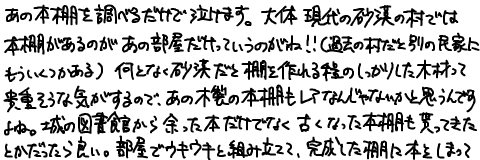 あの本棚を調べるだけで泣けます。大体 現代の砂漠の村では
本棚があるのが あの部屋だけっていうのがね!!(過去の村だと別の民家に
もういくつかある) 何となく砂漠だと 棚を作れる程のしっかりした木材って
貴重そうな気がするので、あの木製の本棚もレアなんじゃないかと思うんです
よね。城の図書館から余った本だけでなく 古くなった本棚も貰ってきた
とかだったら良い。部屋でウキウキと組み立てて、完成した棚に本をしまって